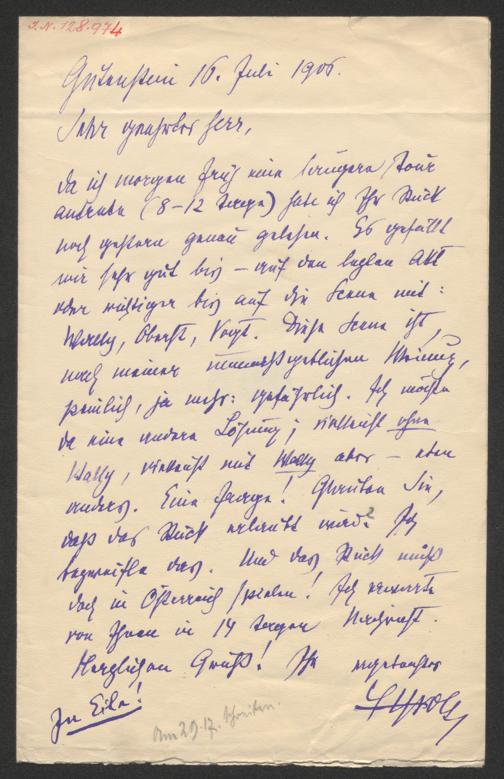 I.N. 128.974
Gutenstein 16. Juli 1906.
Sehr geehrter Herr,
da ich morgen früh eine längere Tour
antrete (8–12 Tage) habe ich Ihr Stück
noch gestern genau gelesen. Es gefällt
mir sehr gut bis – auf den letzten Akt
oder richtiger bis auf die Scene mit:
Wally, Oberst, Vogt. Diese Scene ist,
nach meiner unmaßgeblichen Meinung,
peinlich, ja mehr: gefährlich. Ich möchte
da eine andere Lösung; vielleicht ohne
Wally, vielleicht mit Wally aber – eben
anders. Eine Frage! Glauben Sie,
daß das Stück erlaubt wird? Ich
bezweifle das. Und das Stück muß
doch in Österreich spielen! Ich erwarte
von Ihnen in 14 Tagen Nachricht.
Herzlichen Gruß! Ihr ergebenster
In Eile!
Am 29. 17. schreiben.